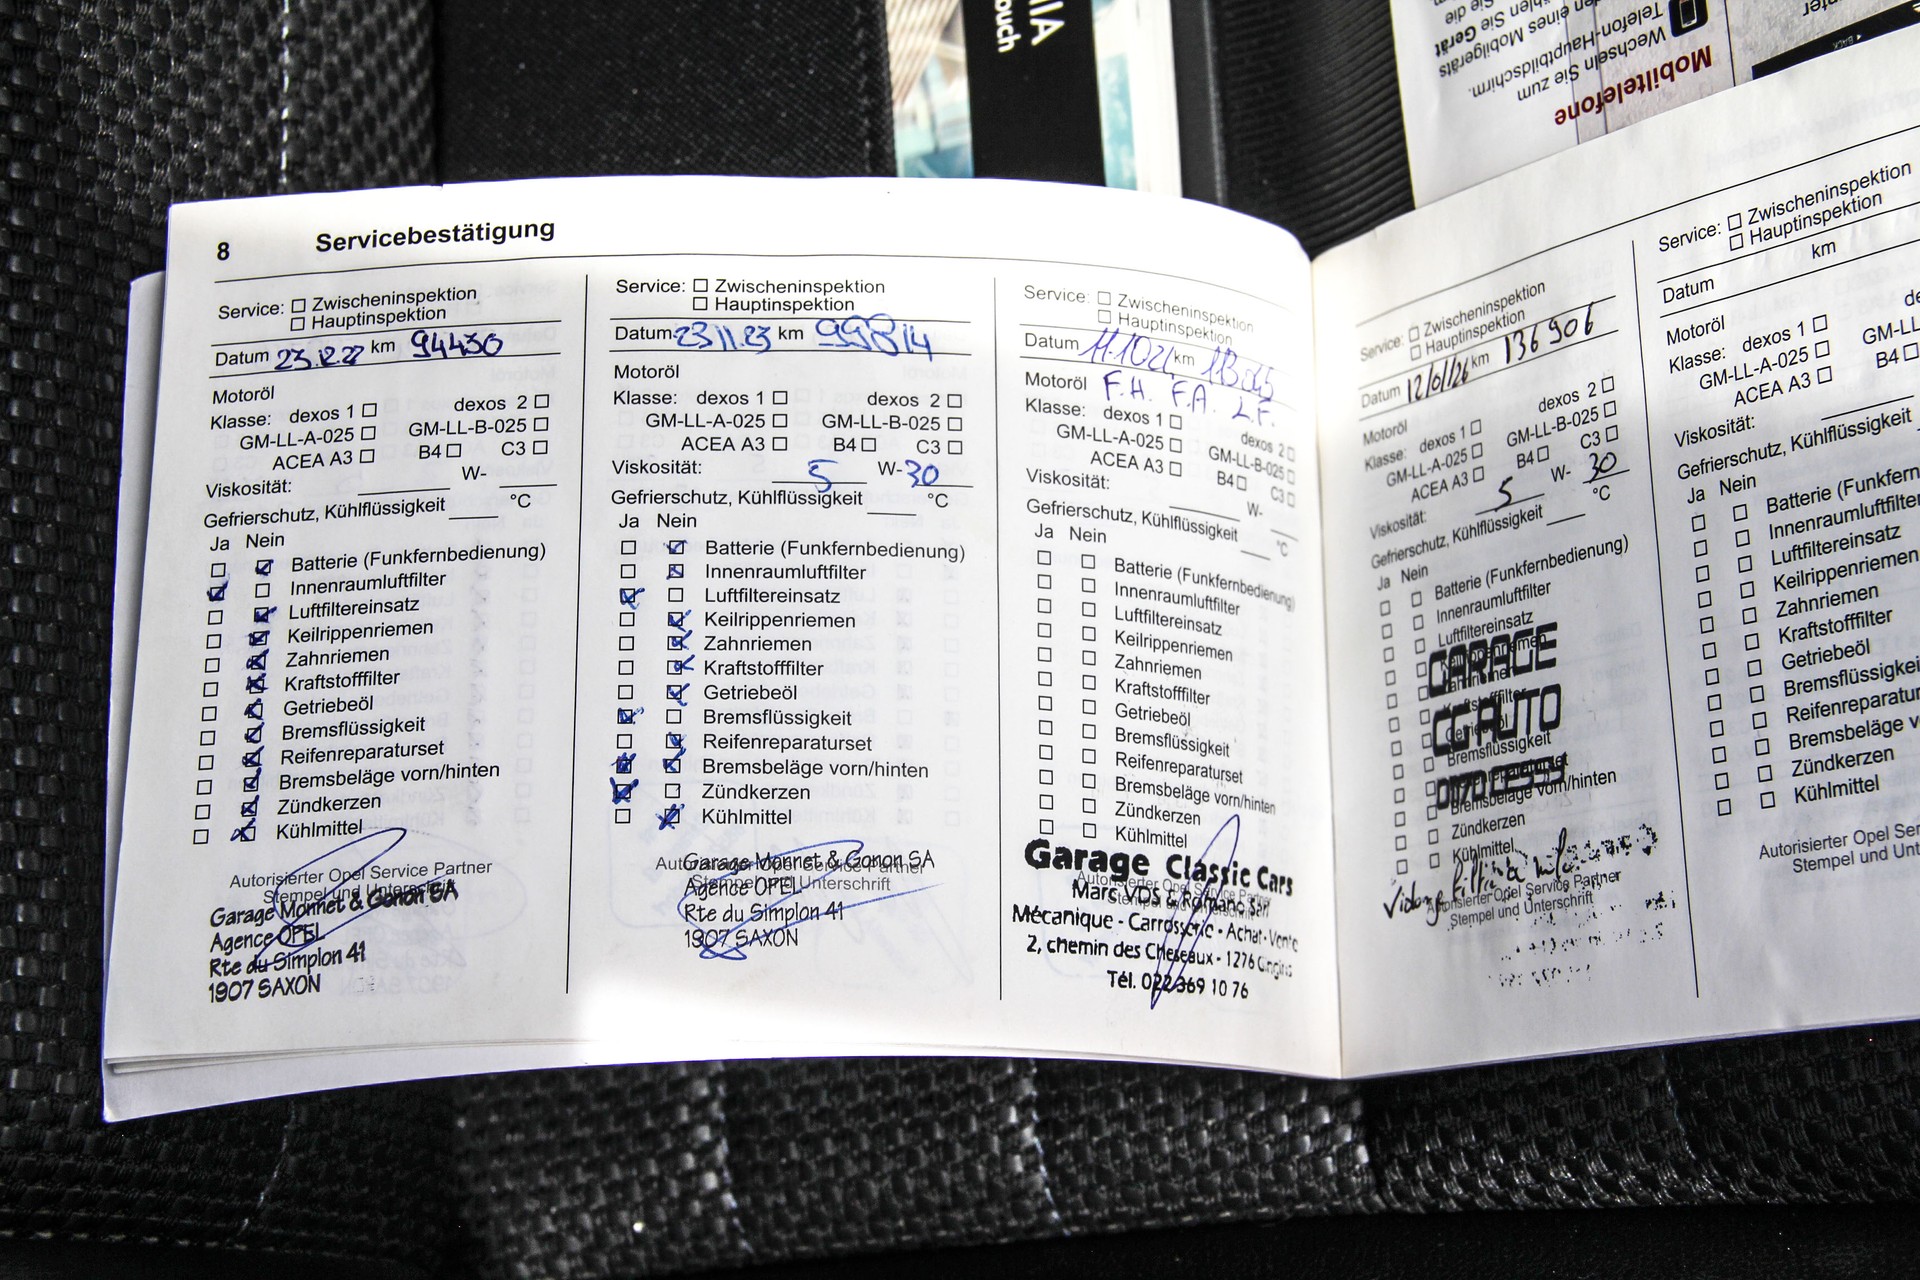 8 Servicebestätigung
Service: Zwischeninspektion
Hauptinspektion
Datum 23.12.22 km 94430
Motoröl
Klasse: dexos 1 dexos 2
GM-LL-A-025 GM-LL-B-025
ACEA A3 B4 C3
Viskosität: W-
Gefrierschutz, Kühlflüssigkeit °C
Ja Nein
Batterie (Funkfernbedienung)
Innenraumluftfilter
Luftfiltereinsatz
Keilrippenriemen
Zahnriemen
Kraftstofffilter
Getriebeöl
Bremsflüssigkeit
Reifenreparaturset
Bremsbeläge vorn/hinten
Zündkerzen
Kühlmittel
Autorisierter Opel Service Partner
Stempel und Unterschrift
Garage Monnet & Gonon SA
Agence OPEL
Rte du Simplon 41
1907 SAXON
Service: Zwischeninspektion
Hauptinspektion
Datum 23 11.23 km 99814
Motoröl
Klasse: dexos 1 dexos 2
GM-LL-A-025 GM-LL-B-025
ACEA A3 B4 C3
Viskosität: 5 W-30
Gefrierschutz, Kühlflüssigkeit °C
Ja Nein
Batterie (Funkfernbedienung)
Innenraumluftfilter
Luftfiltereinsatz
Keilrippenriemen
Zahnriemen
Kraftstofffilter
Getriebeöl
Bremsflüssigkeit
Reifenreparaturset
Bremsbeläge vorn/hinten
Zündkerzen
Kühlmittel
Autorisierter Opel Service Partner
Stempel und Unterschrift
Garage Monnet & Gonon SA
Agence OPEL
Rte du Simplon 41
1907 SAXON
Service: Zwischeninspektion
Hauptinspektion
Datum km
Motoröl F.H. F.A. L.F.
Klasse: dexos 1 dexos 2
GM-LL-A-025 GM-LL-B-025
ACEA A3 B4 C3
Viskosität: W-
Gefrierschutz, Kühlflüssigkeit °C
Ja Nein
Batterie (Funkfernbedienung)
Innenraumluftfilter
Luftfiltereinsatz
Keilrippenriemen
Zahnriemen
Kraftstofffilter
Getriebeöl
Bremsflüssigkeit
Reifenreparaturset
Bremsbeläge vorn/hinten
Zündkerzen
Kühlmittel
Autorisierter Opel Service Partner
Stempel und Unterschrift
Garage Classic Cars
Marc VDS & Romano Sàrl
Mécanique - Carrosserie - Achat - Vente
2, chemin des Cheseaux - 1276 Gingins
Tél. 022 369 10 76
Service: Zwischeninspektion
Hauptinspektion
Datum 12/01/26 km 136 906
Motoröl
Klasse: dexos 1 dexos 2
GM-LL-A-025 GM-LL-B-025
ACEA A3 B4 C3
Viskosität: 5 W-30
Gefrierschutz, Kühlflüssigkeit °C
Ja Nein
Batterie (Funkfernbedienung)
Innenraumluftfilter
Luftfiltereinsatz
Bremsflüssigkeit
Bremsbeläge vorn/hinten
Zündkerzen
Kühlmittel
GARAGE
CG AUTO
Autorisierter Opel Service Partner
Stempel und Unterschrift
Service: Zwischeninspektion
Hauptinspektion
Datum km
Motoröl
Klasse: dexos 1
GM-LL-A-025
ACEA A3 B4
Viskosität:
Gefrierschutz, Kühlflüssigkeit
Ja Nein
Batterie
Innenraumluftfilter
Luftfiltereinsatz
Keilrippenriemen
Zahnriemen
Kraftstofffilter
Getriebeöl
Bremsflüssigkeit
Bremsbeläge
Zündkerzen
Kühlmittel
Autorisierter Opel
Stempel und
Mobiltelefone
Wechseln Sie zum
Telefon-Hauptbildschirm.
Mobilgeräts
Gerät